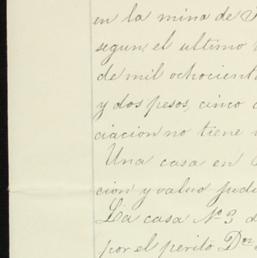 en la mina de
segun el ultimo
de mil ochocient
y dos pesos, cinco
ciacion no tiene
Una casa en
cion y valuo judi
La casa Nº 3 d
por el perito Dn